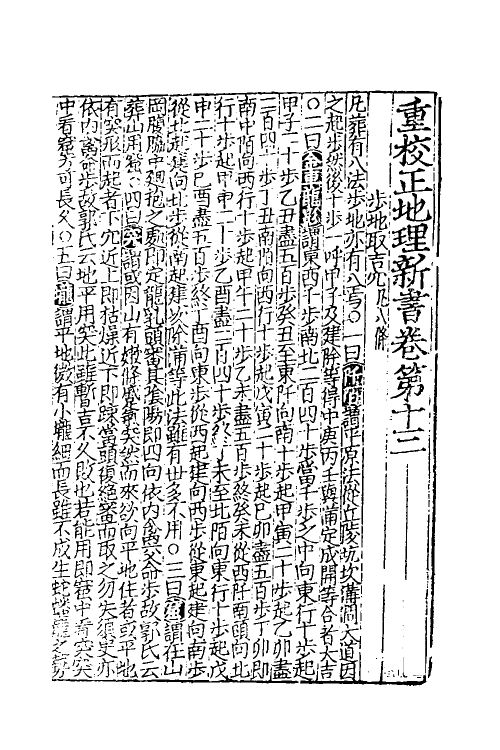 重校正地理新書卷第十三
步地取吉穴凡八條
凡葬有八法步地亦有八焉○一曰謂平原法從丘陵坑坎溝澗大道因
之起步然後十步一呼甲子及建除等得中庚丙壬與滿定成開等合者大吉
○二曰金車龍影謂東西千步南北二百四十步當千步之中向東行十步起
甲子二十步乙丑盡五百步癸丑至東阡向南十步起甲寅二十步起乙卯盡
二百四十步丁丑南陌向西行十步起戊寅二十步起己卯盡五百步丁卯即
南中陌向西行十步起甲午二十步乙未盡五百步終癸未從西阡南頭向北
行十步起甲申二十步乙酉盡二百四十步終丁未至北陌向東行十步起戊
申二十步己酉盡五百步終丁酉向東步從西起建向西步從東起建向南步
從北起建向北步從南起建以除滿等此法雖有世多不用○三曰謂在山
岡腰脇中廻抱之處即定龍乳頭審其陰陽即四向依內禽交命步故郭氏云
葬山用○四曰突謂或因山有嫩條突然而來於向平地住者或平地
有突形而起者下穴近上即枯燥近下即當頭復絕審而取之勿失須臾亦
依內禽命步故郭氏云地平用突此雖暫吉不久敗也若能用即窟中看突突
中看窟方可長久○五曰壠謂平地微有小壠細而長雖不成生蛇之勢